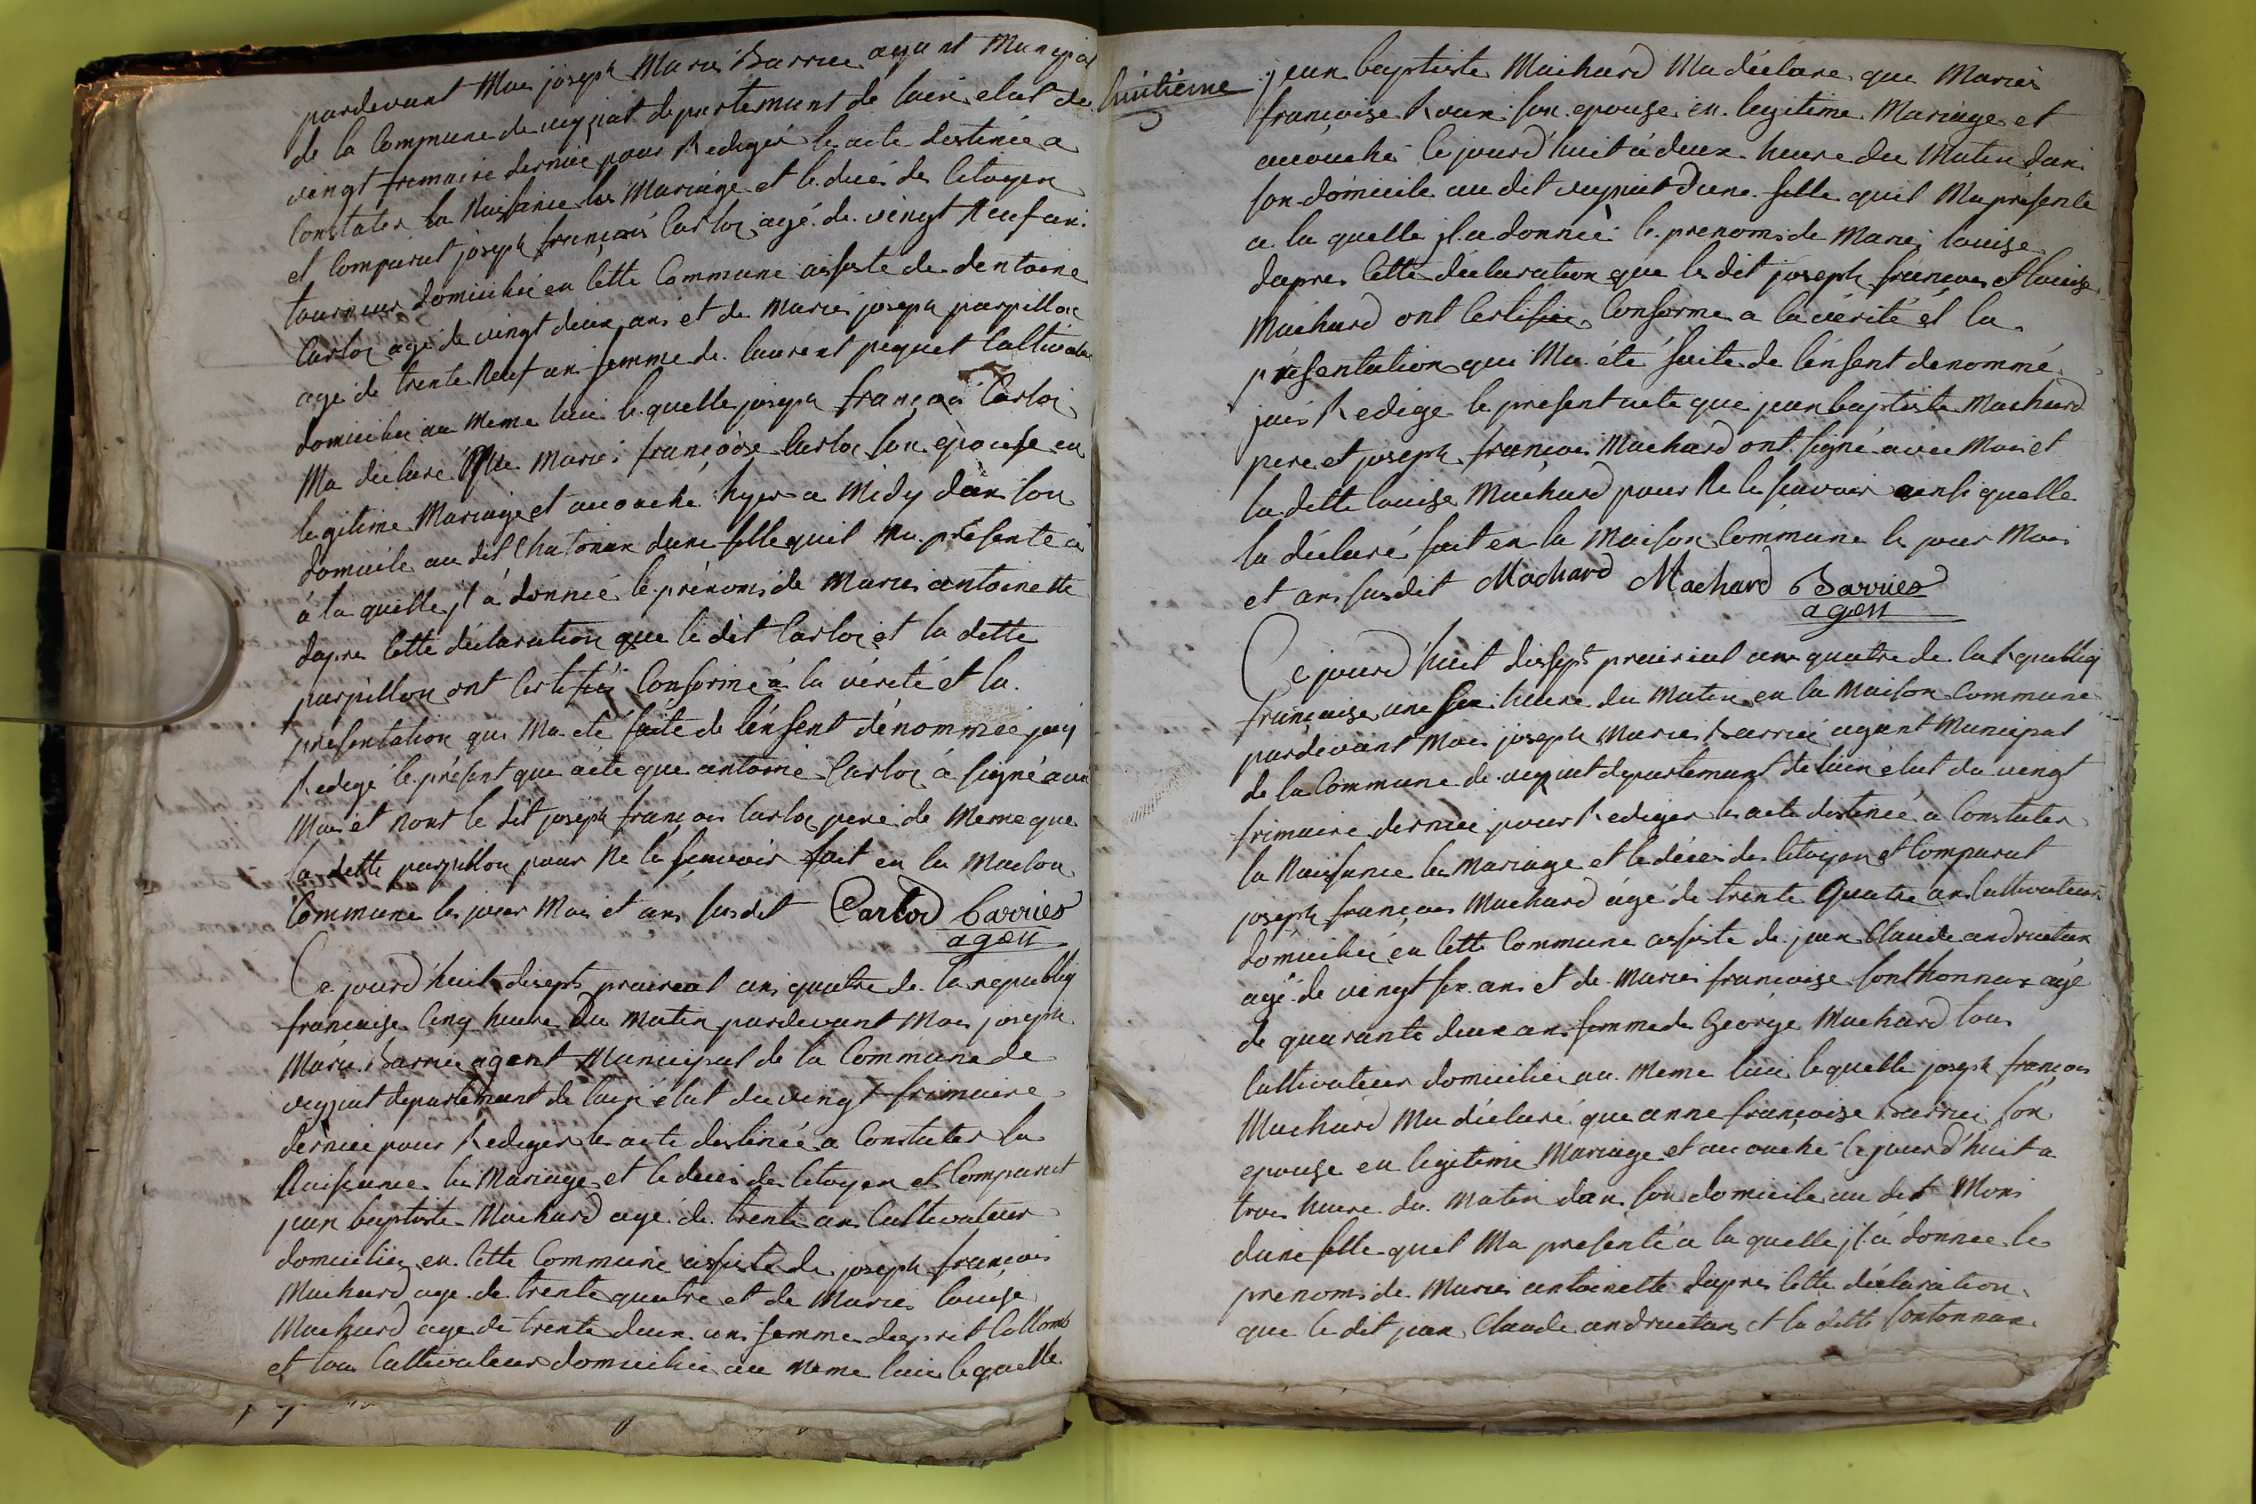 pardevant Moi joseph Marie Barrie agant Munepal
de la Commune de veyziat departemant de lain elut du
vingt frimaire dernie pour Rediger le acte destinée a
Constater la Naissance les Mariage et le deces des Citoyen
et Comparut joseph françois Carloz agé de vingt Neuf ans
tourneur domicilié en cette Commune assisté de dentoine
Carloz agé de vingt deux ans et de Marie joseph parpillon
agé de trente Neuf an femme de laurent pequet Cultivateur
domicilie au meme lieu le quelle joseph françois Carloz
Ma declaré que Marie françoise Carloz son epouse en
legitime Mariage et acouché hyer a Midy dan son
domicile au dit Chatonax dune fille quil Ma présenté
à la quelle jl à donnée le prénoms de Marie antoinette
dapres Cette déclaration que le dit Carloz et la dette
parpillon ont Certifié Conforme à la vérité et la
présentation qui Ma eté faite de lénfent dénommée jay
Redegé le présent que acte que antoine Carloz à signé avec
Moi et nont le dit joseph françois Carloz pere de Meme que
la dette parpillon pour Ne le scavoir fait en la Maison
Commune les jour Moi et ans susdit Carloz Barrier
agen
Ce jourd'huit diseps prairial ans quatre de la republiq
francaise Cinq heure du matin pardevant Moi joseph
Marie Barrie agent Municipal de la Commune de
veyziat departemant de lain élut du vingt frimaire
dérnier pour Rediger le acte destinée a Constater la
Naissance les Mariage et le deces des Citoyen et Comparut
jean baptiste Machard agé de trente ans Cultivateur
domiciliez en Cette Commune assisté de joseph françois
Machard age de trente quatre et de Marie louise
Machard age de trente deux ans femme desprit Collomb
et tous Cultivateur domicilié au meme lieu le quelle
huitieme jean baptiste Machard Ma déclare que Marie
françoise Roux son epouse en legitime Mariage et
acouché Cejourd'huit à deux heure du Matin dan
son domicile au dit veyziat dune fille quil Ma présenté
a la quelle jl a donnée le prenoms de Marie louise
dapres Cette déclaration que le dit joseph françois et louise
Machard ont Certifiée Conforme a la vérité et la
présentation qui Ma été faite de lénfent denommé
jais Redige le présent acte que jean baptiste Machard
pere et joseph françois Machard ont signé avec Moi et
la dette louise Machard pour Ne le scavoir ainsi quelle
la déclaré fait en la Maison Commune le jour Moi
et ans susdit Machard Machard Barrier
agen
Ce jourd'huit disept prairial an quatre de la Republiq
française une six heure du Matin en la Maison Commune
pardevant Moi joseph Marie Barrie agant Municipal
de la Commune de veyziat departemant de lain élut du vingt
frimaire dernie pour Rediger le acte destinée a Constater
la Naissance les Mariage et le déces des Citoyen et Comparut
joseph françois Machard âgé de trente Quatre an Cultivateur
domicilié en Cette Commune assisté de jean Claude andruetan
agé de vingt six ans et de Marie françoise Sonthonnax agé
de quarante deux ans femme de George Machard tous
Cultivateur domicilie au meme lieu le quelle joseph françois
Machard Ma déclaré que anne françoise Barrie son
epouse en legitime Mariage et acouché Cejourd'huit a
trois heure du Matin dan son domicile au dit Mons
dune fille quil Ma présenté à la quelle jl à donnée le
prenoms de Marie antoinette dapres Cette déclaration
que le dit jean Claude andruetan et la dette Sontonnax